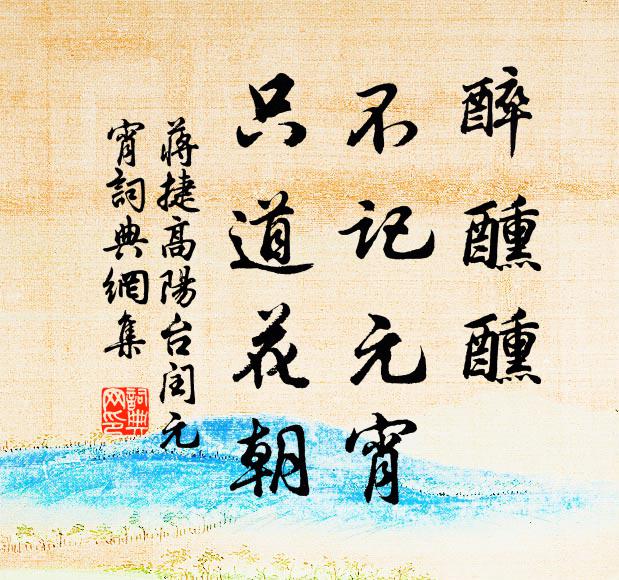 醉醺醺
不记元宵
只道花朝
蔣捷高陽台闰元
宵詞典網集
詞典
网印